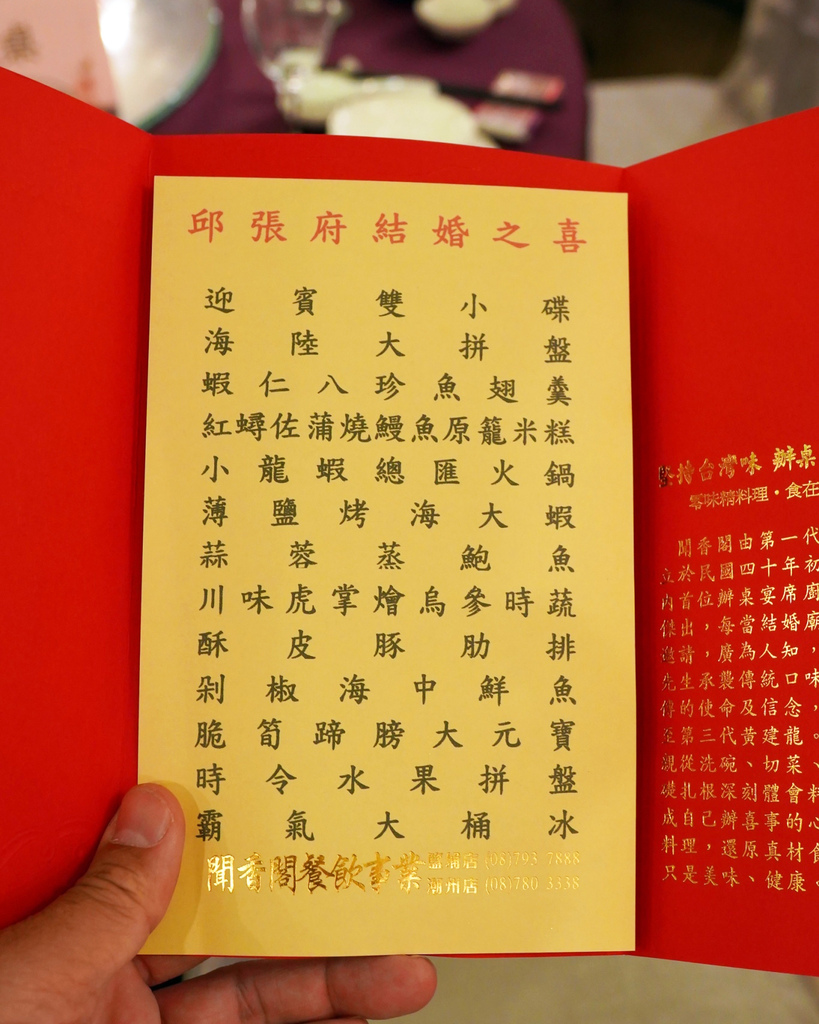 邱張府結婚之喜
迎賓雙小碟
海陸大拼盤
蝦仁八珍魚翅羹
紅蟳佐蒲燒鰻魚原籠米糕
小龍蝦總匯火鍋
薄鹽烤海大蝦
蒜蓉蒸鮑魚
川味虎掌燴烏參時蔬
酥皮豚肋排
剁椒海中鮮魚
脆筍蹄膀大元寶
時令水果拼盤
霸氣大桶冰
聞香閣餐飲事業
鹽埔店 (08)793-7888
潮州店 (08)780-3338
堅持台灣味 辦桌
零味精料理·食在
聞香閣由第一代
立於民國四十年初
內首位辦桌宴席廚
傑出，每當結婚廟
邀請，廣為人知，
先生承襲傳統口味
傳的使命及信念，
至第三代黃建龍。
親從洗碗、切菜、
礎扎根深刻體會料
成自己辦喜事的心
料理，還原真材食
只是美味、健康、